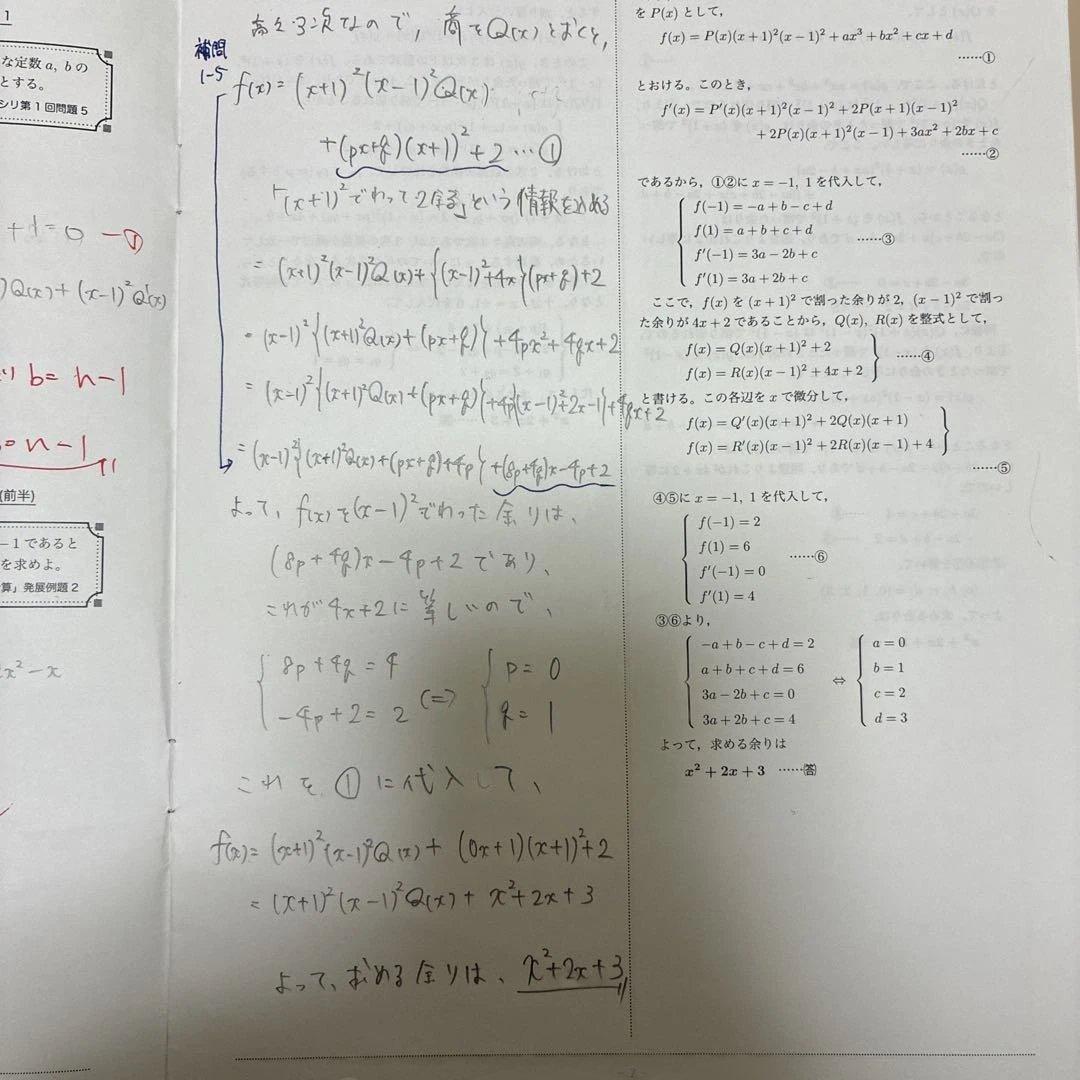 1
な定数 a, b の
とする。
シリ第 1 回問題 5
+d=0 —①
)Q(x)+(x-1)²Q'(x)
b=n-1
=n-1
(前半)
−1 であると
を求めよ。
算」発展例題 2
x²−x
高々3次なので, 商をQ(x)とおくと,
補問
1-5
f(x)=(x+1)²(x-1)²Q(x)
+(px+q)(x+1)²+2 …①
「(x+1)²でわって2余る」という情報を込める
=(x+1)²(x-1)²Q(x)+{(x-1)²+4x}(px+q)+2
=(x-1)²{(x+1)²Q(x)+(px+q)}+4px²+4qx+2
=(x-1)²{(x+1)²Q(x)+(px+q)}+4p{(x-1)²+2x-1}+4qx+2
=(x-1)²{(x+1)²Q(x)+(px+q)+4p}+(8p+4q)x-4p+2
よって, f(x)を(x-1)²でわった余りは、
(8p+4q)x-4p+2であり、
これが4x+2に等しいので、
{8p+4q=4
-4p+2=2 ⇔ {p=0
q=1
これを①に代入して、
f(x)=(x+1)²(x-1)²Q(x)+(0x+1)(x+1)²+2
=(x+1)²(x-1)²Q(x)+x²+2x+3
よって、求める余りは、x²+2x+3
を P(x) として,
f(x)=P(x)(x+1)²(x−1)²+ax³+bx²+cx+d
……①
とおける。このとき,
f′(x)=P′(x)(x+1)²(x−1)²+2P(x)(x+1)(x−1)²
+2P(x)(x+1)²(x−1)+3ax²+2bx+c
……②
であるから, ①②に x=−1, 1 を代入して,
f(−1)=−a+b−c+d
f(1)=a+b+c+d
f′(−1)=3a−2b+c
f′(1)=3a+2b+c
……③
ここで, f(x) を (x+1)² で割った余りが 2, (x−1)² で割っ
た余りが 4x+2 であることから, Q(x), R(x) を整式として,
f(x)=Q(x)(x+1)²+2
f(x)=R(x)(x−1)²+4x+2
……④
と書ける。この各辺を x で微分して,
f(x)=Q′(x)(x+1)²+2Q(x)(x+1)
f(x)=R′(x)(x−1)²+2R(x)(x−1)+4
……⑤
④⑤に x=−1, 1 を代入して,
f(−1)=2
f(1)=6
f′(−1)=0
f′(1)=4
……⑥
③⑥より,
−a+b−c+d=2
a+b+c+d=6
3a−2b+c=0
3a+2b+c=4
⇔
a=0
b=1
c=2
d=3
よって, 求める余りは
x²+2x+3 ……答